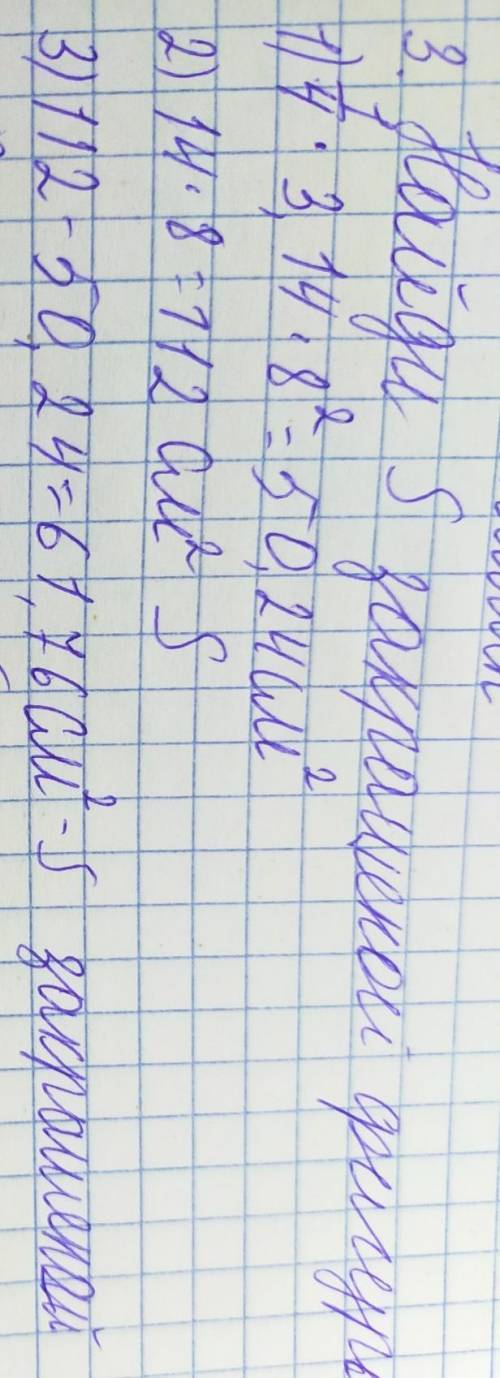 3. Найди S закрашеной фигуры
1) 1/4 · 3,14 · 8² = 50,24 см²
2) 14 · 8 = 112 см² S
3) 112 - 50,24 = 61,76 см² - S закрашеной